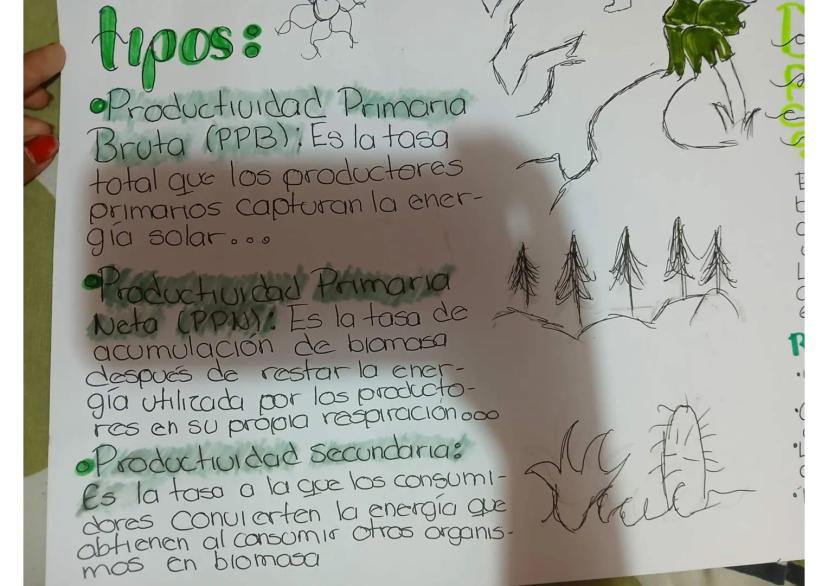 tipos:
•Productividad Primaria
Bruta (PPB): Es la tasa
total que los productores
primarios capturan la ener-
gía solar...
•Productividad Primaria
Neta (PPN): Es la tasa de
acumulación de biomasa
después de restar la ener-
gía utilizada por los producto-
res en su propia respiración...
•Productividad secundaria:
Es la tasa a la que los consumi-
dores convierten la energía que
obtienen al consumir otros organis-
mos en biomasa